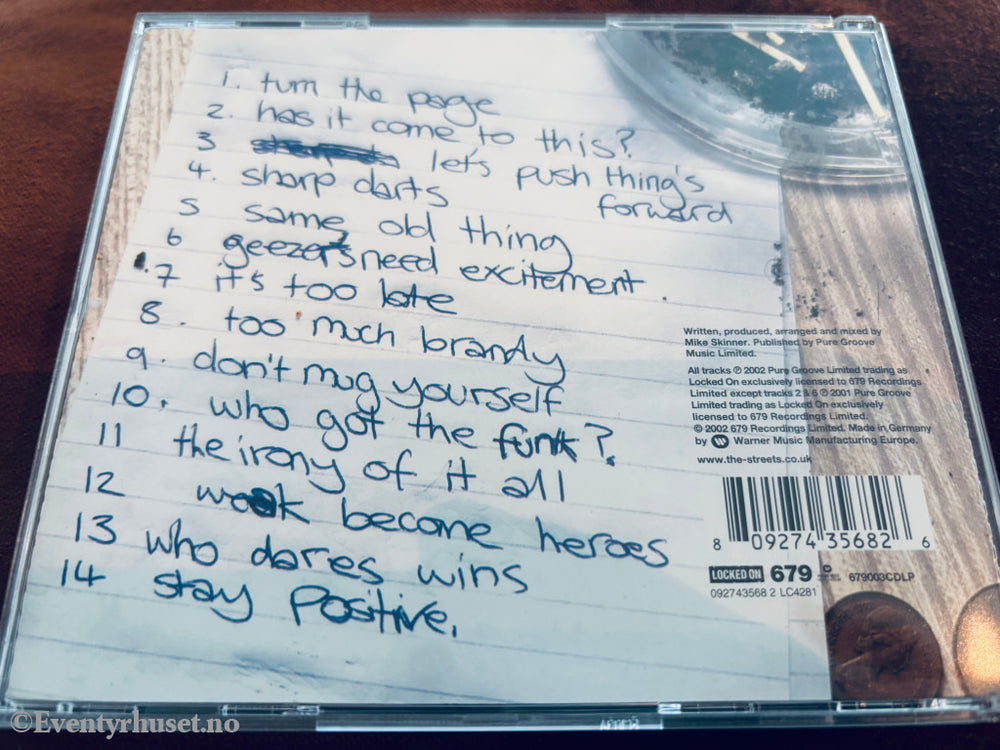 1. turn the page
2. has it come to this?
3 let's push thing's
forward
4. sharp darts
5 same old thing
6 geezers need excitement.
7 it's too late
8. too much brandy
9. don't mug yourself
10. who got the funk?
11 the irony of it all
12 weak become heroes
13 who dares wins
14 stay positive.
Written, produced, arranged and mixed by
Mike Skinner. Published by Pure Groove
Music Limited.
All tracks ℗ 2002 Pure Groove Limited trading as
Locked On exclusively licensed to 679 Recordings
Limited except tracks 2 & 6 ℗ 2001 Pure Groove
Limited trading as Locked On exclusively
licensed to 679 Recordings Limited.
© 2002 679 Recordings Limited. Made in Germany
by Warner Music Manufacturing Europe.
www.the-streets.co.uk
8 09274 35682 6
LOCKED ON 679 679003CDLP
092743568 2 LC4281
©Eventyrhuset.no